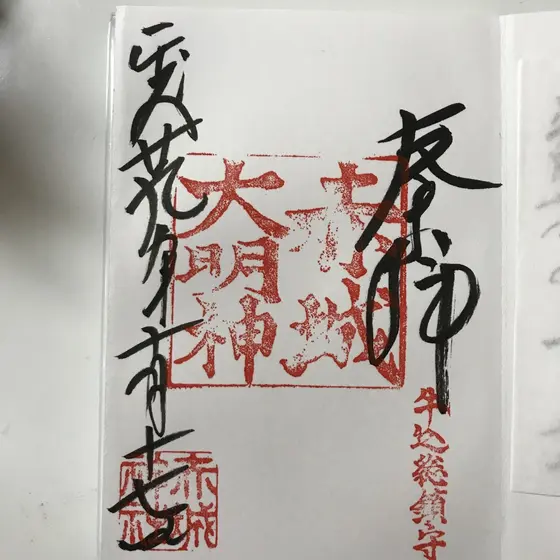 奉拝
赤城
大明神
牛込総鎮守
平成廿九年 月十七日
赤城
神社